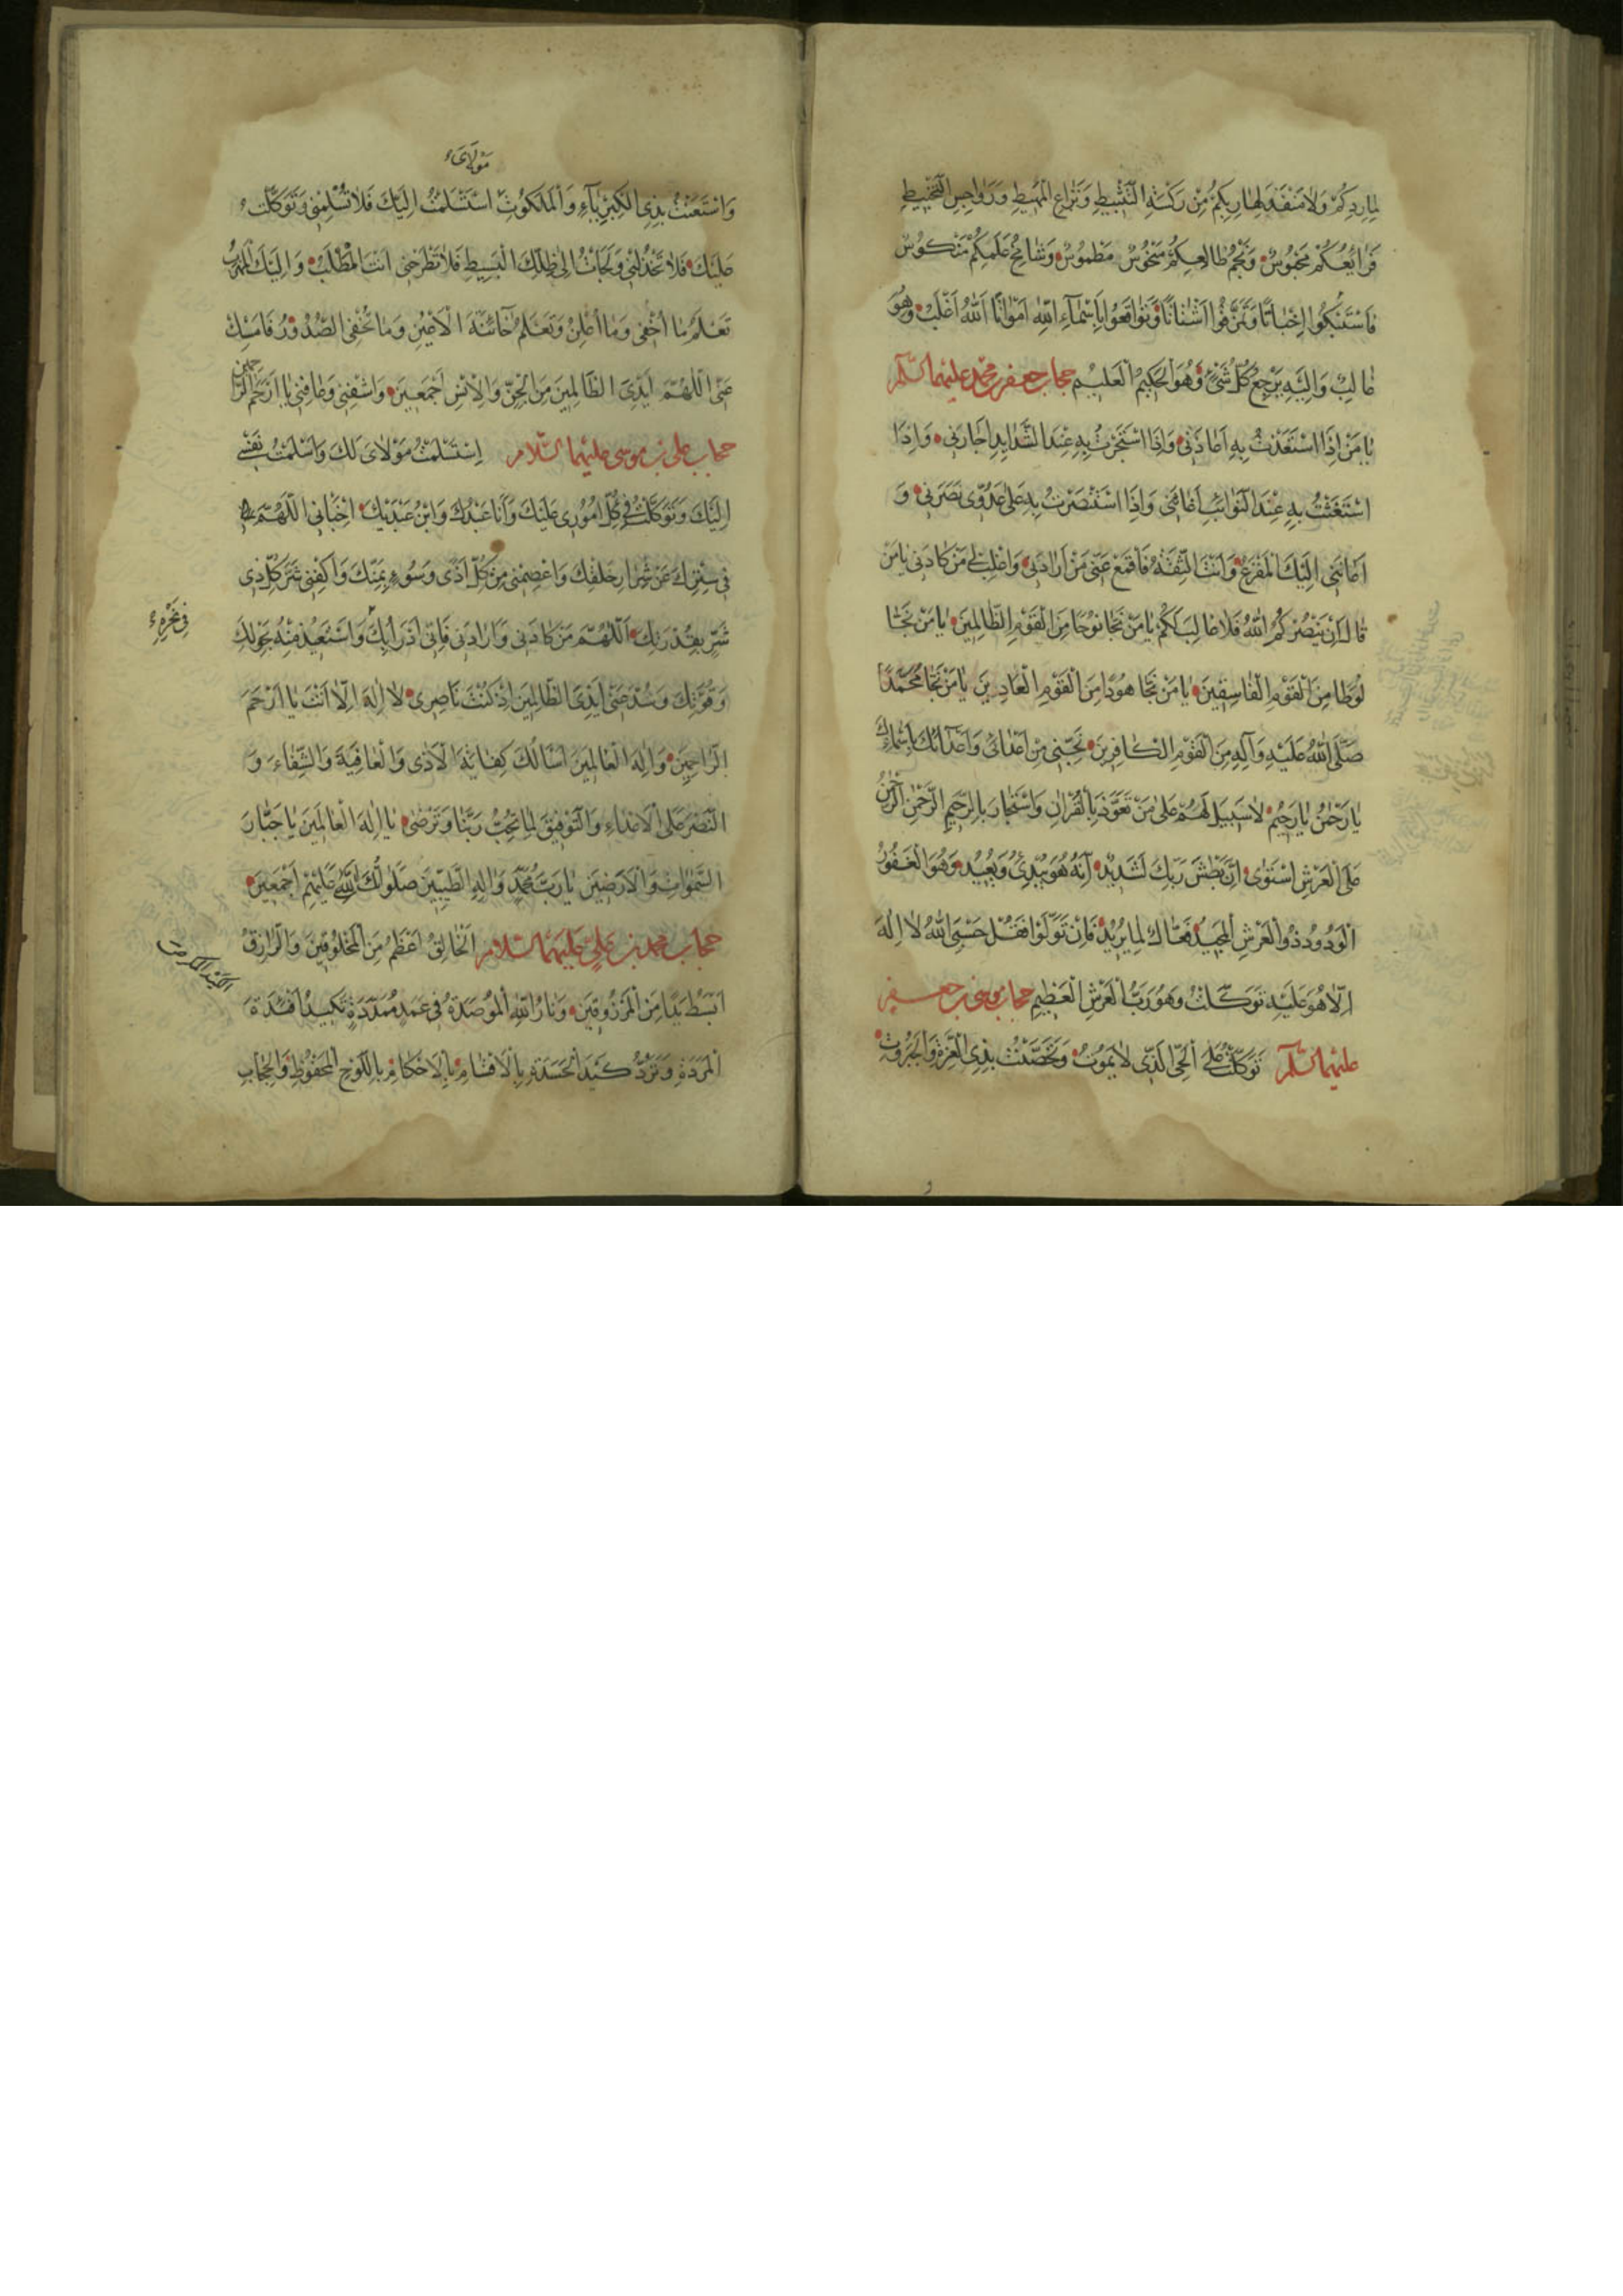 لِمارِدِكُمْ وَلا مَنْفَذَ لِهارِبِكُمْ مِنْ رَكْسَةِ التَّثْبِيطِ وَنِزاعِ الْمَهِيطِ وَرَواجِسِ التَّخْبِيطِ
فَرايعُكُمْ مَحْبُوسٌ وَنَجْمُ طالِعِكُمْ مَنْحُوسٌ مَطْمُوسٌ وَشامِخُ عَلَمِكُمْ مَنْكُوسٌ
فَاسْتَبْكُوا اِخْباتًا وَتَمَزَّقُوا اَشْتاتًا وَتَواقَعُوا بِاَسْمآءِ اللّٰهِ اَمْواتًا اَللّٰهُ اَغْلَبُ وَهُوَ
غالِبٌ وَاِلَيْهِ يَرْجِعُ كُلُّ شَيْءٍ وَهُوَ الْحَكِيمُ الْعَلِيمُ حجاب جعفر بن محمد عليهما السلام
يا مَنْ اِذَا اسْتَعَذْتُ بِهِ اَعاذَنِي وَاِذَا اسْتَجَرْتُ بِهِ عِنْدَ الشَّدايِدِ اَجارَنِي وَاِذَا
اسْتَغَثْتُ بِهِ عِنْدَ النَّوائِبِ اَغاثَنِي وَاِذَا اسْتَنْصَرْتُ بِهِ عَلى عَدُوِّي نَصَرَنِي وَ
اَعانَنِي اِلَيْكَ الْمَفْزَعُ وَاَنْتَ الثِّقَةُ فَاقْمَعْ عَنِّي مَنْ اَرادَنِي وَاغْلِبْ لِي مَنْ كادَنِي يا مَنْ
قالَ اِنْ يَنْصُرْكُمُ اللّٰهُ فَلا غالِبَ لَكُمْ يا مَنْ نَجّا نُوحًا مِنَ الْقَوْمِ الظّالِمِينَ يا مَنْ نَجّا
لُوطًا مِنَ الْقَوْمِ الْفاسِقِينَ يا مَنْ نَجّا هُودًا مِنَ الْقَوْمِ الْعادِينَ يا مَنْ نَجّا مُحَمَّدًا
صَلَّى اللّٰهُ عَلَيْهِ وَآلِهِ مِنَ الْقَوْمِ الْكافِرِينَ نَجِّنِي مِنْ اَعْدائِي وَاَعْدائِكَ بِاَسْمائِكَ
يا رَحْمٰنُ يا رَحِيمُ لا سَبِيلَ لَهُمْ عَلى مَنْ تَعَوَّذَ بِالْقُرْاٰنِ وَاسْتَجارَ بِالرَّحِيمِ الرَّحْمٰنِ اَلرَّحْمٰنُ
عَلَى الْعَرْشِ اسْتَوى اِنَّ بَطْشَ رَبِّكَ لَشَدِيدٌ اِنَّهُ هُوَ يُبْدِئُ وَيُعِيدُ وَهُوَ الْغَفُورُ
الْوَدُودُ ذُو الْعَرْشِ الْمَجِيدُ فَعّالٌ لِما يُرِيدُ فَاِنْ تَوَلَّوْا فَقُلْ حَسْبِيَ اللّٰهُ لا اِلٰهَ
اِلّا هُوَ عَلَيْهِ تَوَكَّلْتُ وَهُوَ رَبُّ الْعَرْشِ الْعَظِيمِ حجاب موسى بن جعفر
عليهما السلام تَوَكَّلْتُ عَلَى الْحَيِّ الَّذِي لا يَمُوتُ وَتَحَصَّنْتُ بِذِي الْعِزَّةِ وَالْجَبَرُوتِ
مَوْلايَ
وَاسْتَعَنْتُ بِذِي الْكِبْرِيآءِ وَالْمَلَكُوتِ اسْتَسْلَمْتُ اِلَيْكَ فَلا تُسْلِمْنِي وَتَوَكَّلْتُ
عَلَيْكَ فَلا تَخْذُلْنِي وَلَجَأْتُ اِلى ظِلِّكَ الْبَسِيطِ فَلا تَطْرَحْنِي اَنْتَ الْمَطْلَبُ وَاِلَيْكَ الْمَهْرَبُ
تَعْلَمُ ما اُخْفِي وَما اُعْلِنُ وَتَعْلَمُ خآئِنَةَ الْاَعْيُنِ وَما تُخْفِي الصُّدُورُ فَاَمْسِكْ
عَنِّي اللّٰهُمَّ اَيْدِيَ الظّالِمِينَ مِنَ الْجِنِّ وَالْاِنْسِ اَجْمَعِينَ وَاشْفِنِي وَعافِنِي يا اَرْحَمَ الرّاحِمِينَ
حجاب علي بن موسى عليهما السلام اِسْتَسْلَمْتُ مَوْلايَ لَكَ وَاَسْلَمْتُ نَفْسِي
اِلَيْكَ وَتَوَكَّلْتُ فِي كُلِّ اُمُورِي عَلَيْكَ وَاَنَا عَبْدُكَ وَابْنُ عَبْدَيْكَ اخْبَأْنِي اللّٰهُمَّ
فِي سِتْرِكَ عَنْ شِرارِ خَلْقِكَ وَاعْصِمْنِي مِنْ كُلِّ اَذًى وَسُوءٍ بِمَنِّكَ وَاكْفِنِي شَرَّ كُلِّ ذِي
شَرٍّ بِقُدْرَتِكَ اَللّٰهُمَّ مَنْ كادَنِي وَاَرادَنِي فَاِنِّي اَدْرَاُ بِكَ وَاَسْتَعِيذُ مِنْهُ بِحَوْلِكَ
فِي نَحْرِهِ
وَقُوَّتِكَ وَشُدَّ عَنِّي اَيْدِيَ الظّالِمِينَ اِذْ كُنْتَ ناصِرِي لا اِلٰهَ اِلّا اَنْتَ يا اَرْحَمَ
الرّاحِمِينَ وَاِلٰهَ الْعالَمِينَ اَسْأَلُكَ كِفايَةَ الْاَذى وَالْعافِيَةَ وَالشِّفاءَ وَ
النَّصْرَ عَلَى الْاَعْداءِ وَالتَّوْفِيقَ لِما تُحِبُّ رَبَّنا وَتَرْضى يا اِلٰهَ الْعالَمِينَ يا جَبّارَ
السَّمٰواتِ وَالْاَرَضِينَ يا رَبَّ مُحَمَّدٍ وَالِهِ الطَّيِّبِينَ صَلَواتُ اللّٰهِ عَلَيْهِمْ اَجْمَعِينَ
حجاب محمد بن علي عليهما السلام اَلْخالِقُ اَعْظَمُ مِنَ الْمَخْلُوقِينَ وَالرّازِقُ
اَبْسَطُ يَدًا مِنَ الْمَرْزُوقِينَ وَنارُ اللّٰهِ الْمُوصَدَةُ فِي عَمَدٍ مُمَدَّدَةٍ تَكِيدُ اَفْئِدَةَ
الْمَرَدَةِ وَتَرُدُّ كَيْدَ الْحَسَدَةِ بِالْاَقْسامِ بِالْاَحْكامِ بِاللَّوْحِ الْمَحْفُوظِ وَالْحِجابِ